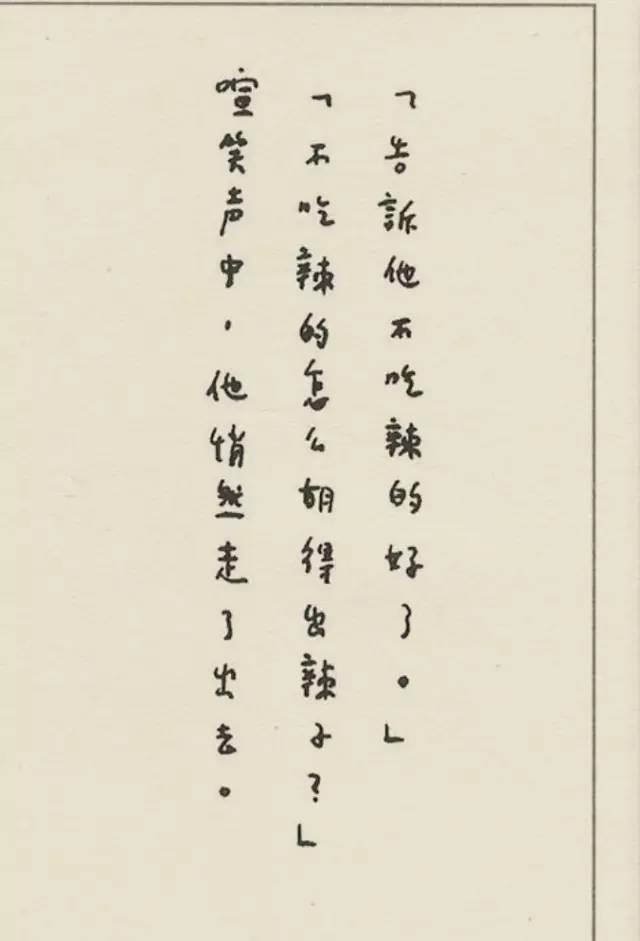 「告訴他不吃辣的好了。」
「不吃辣的怎么胡得出辣子?」
喧笑声中，他悄然走了出去。